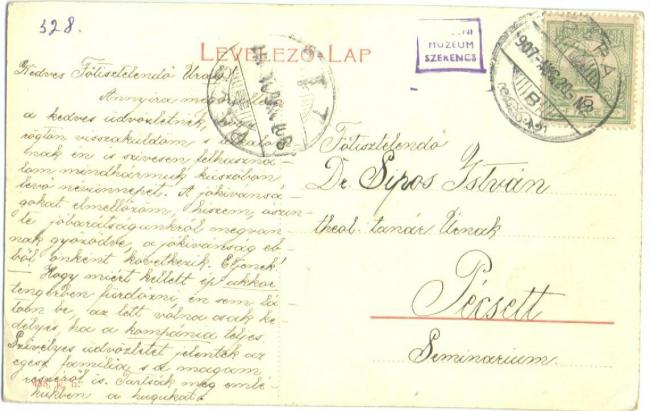 328.
LEVELEZŐ-LAP
MUZEUM
SZERENCS
Kedves Főtisztelendő Uram!
Annyira
a kedves üdvözletnek,
rögtön visszaküldöm s
nak én is szívesen felhaszná-
lom mindhármuk küszöbön
levő nevünnepét. A jókívánsá-
gokat elmellőzöm, hiszem, őszin-
te jóbarátságunkról megvan-
nak győződve, a jókívánság eb-
ből önként következik. Éljenek!
Hogy miért kellett ép akkor
tengerben fürdözni, én sem lá-
tom be, az lett volna csak ke-
délyes, ha a kompánia teljes.
Szívélyes üdvözletet jelentek az
egész família, s a magam
részéről is. Tartsák meg emlé-
kükben a
Főtisztelendő
Dr. Sipos István
theol. tanár Úrnak
Pécsett
Seminarium.